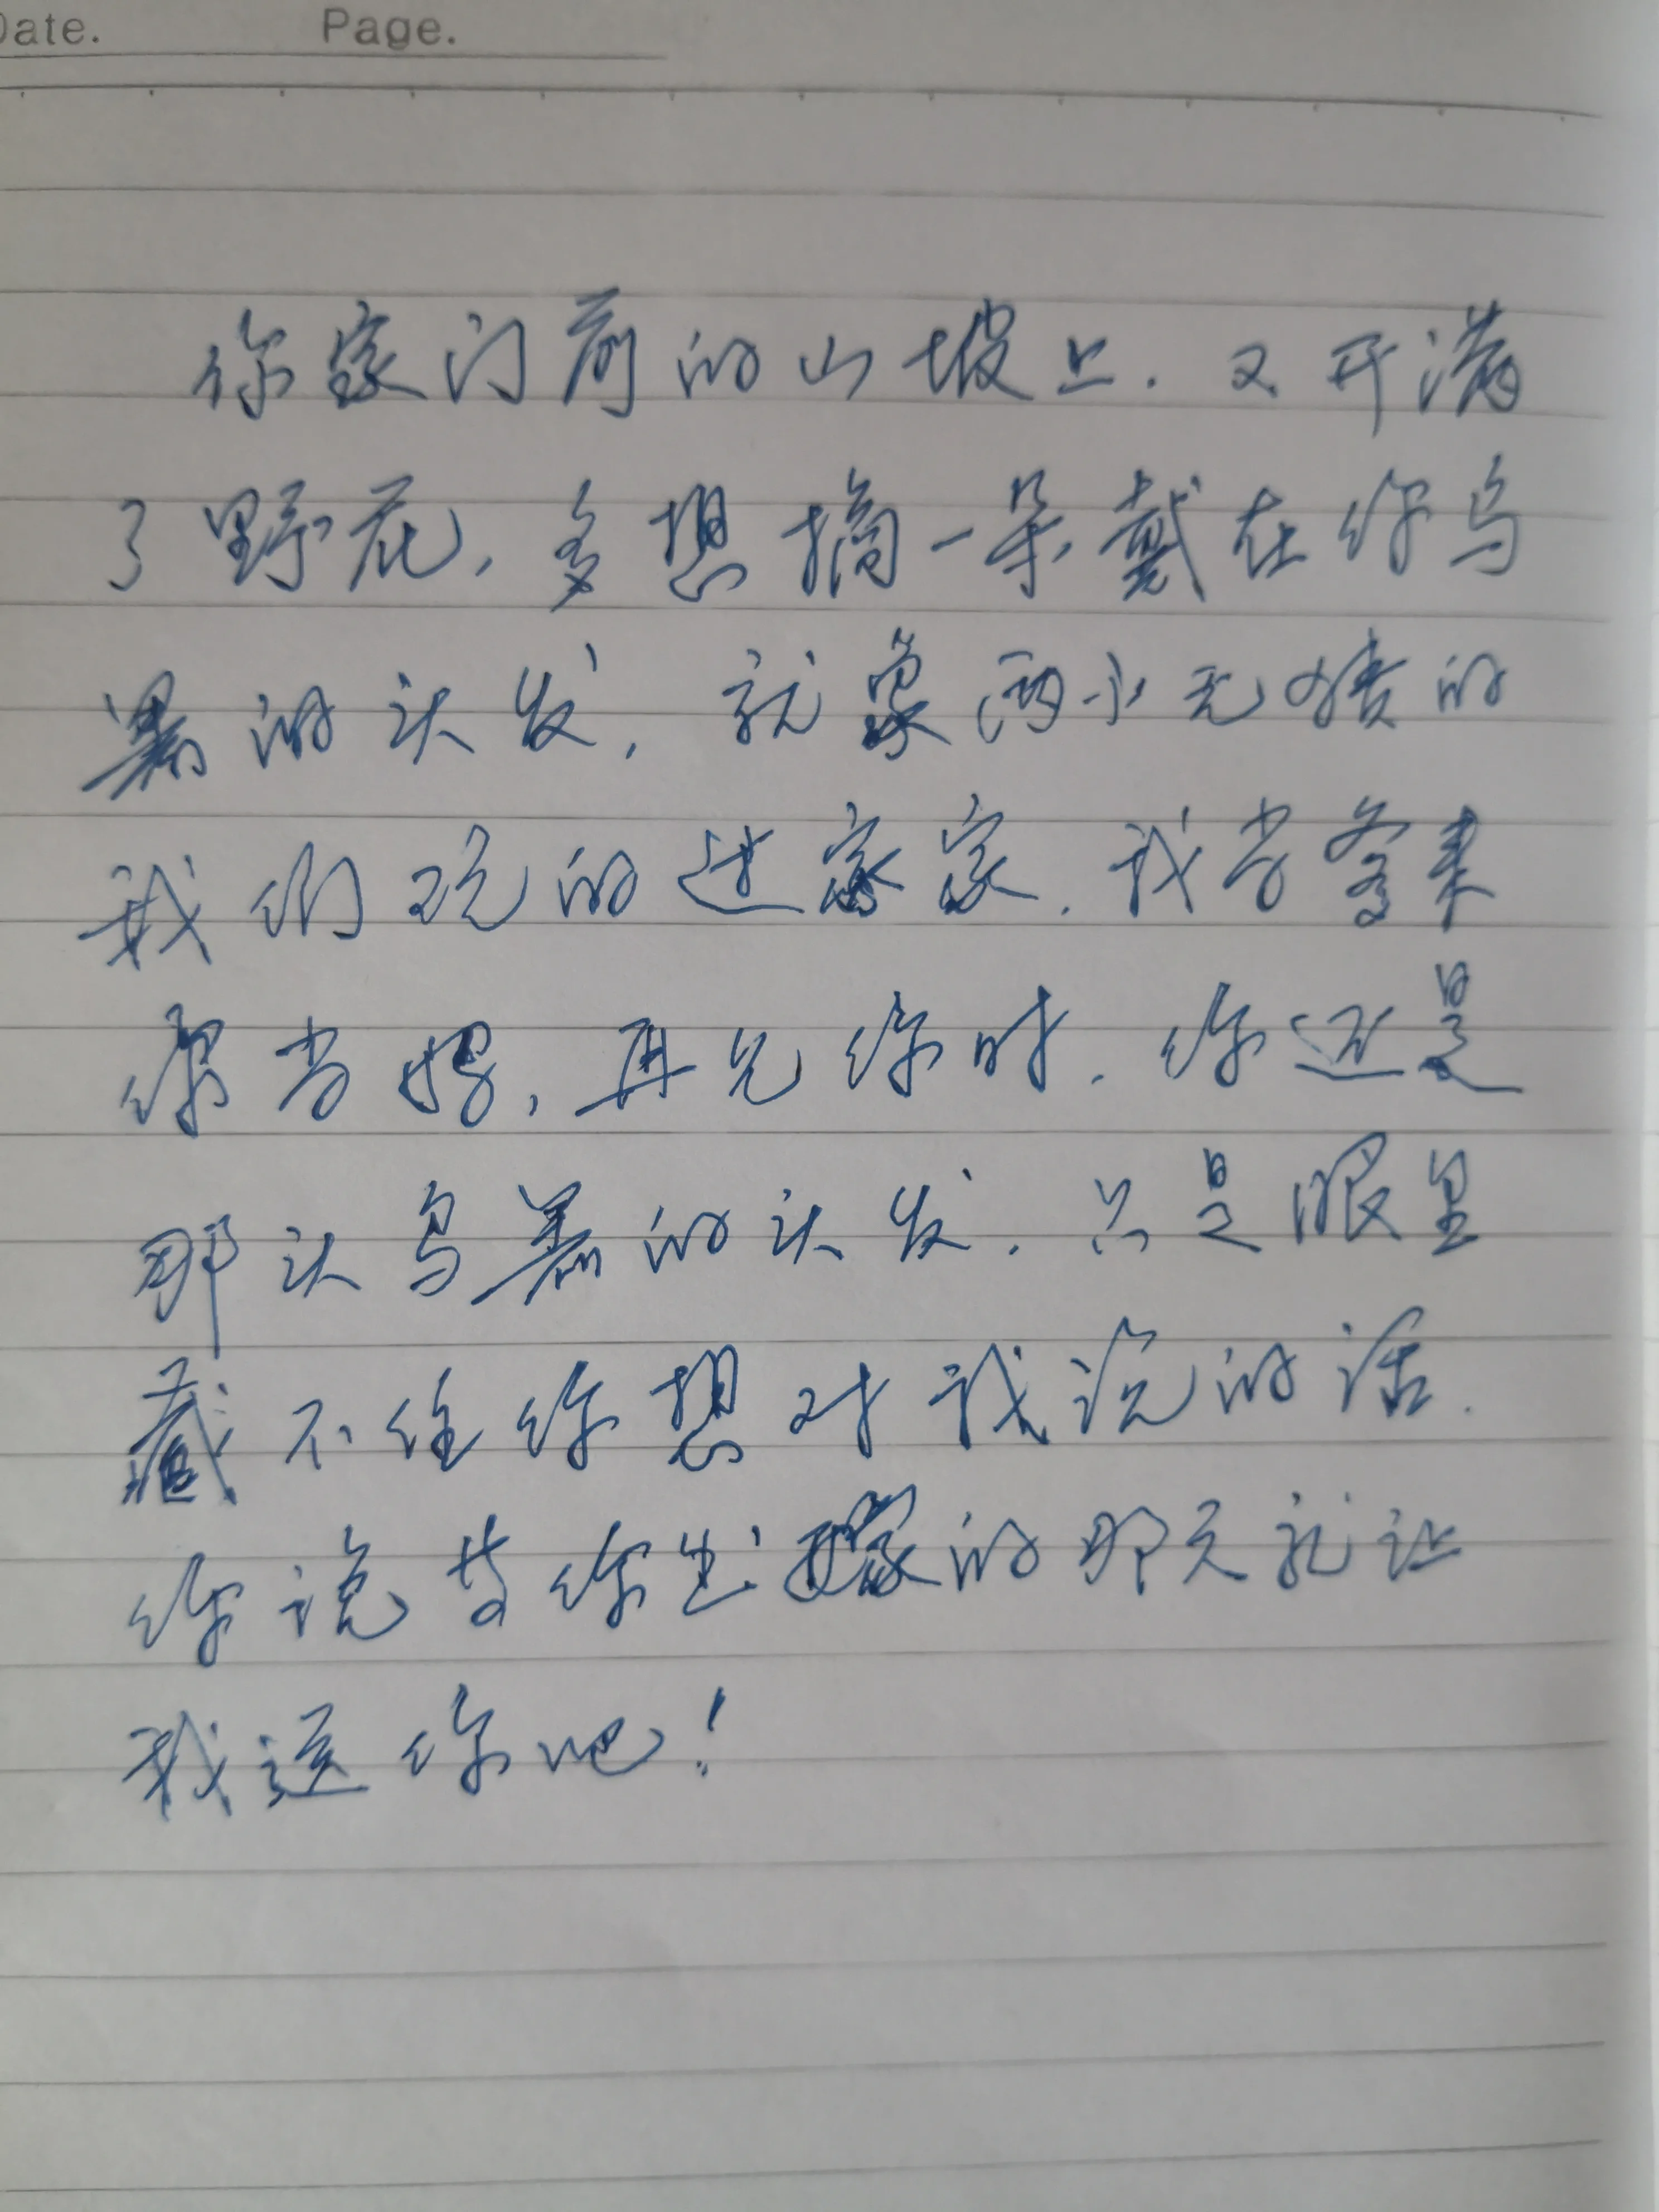 Date. Page.
你家门前的山坡上.又开满
了野花,多想摘一朵戴在你乌
黑的头发,就象两小无猜的
我们玩的过家家.我当爹来
你当妈,再见你时.你还是
那头乌黑的头发.只是眼里
藏不住你想对我说的话.
你说等你出嫁的那天就让
我送你吧!